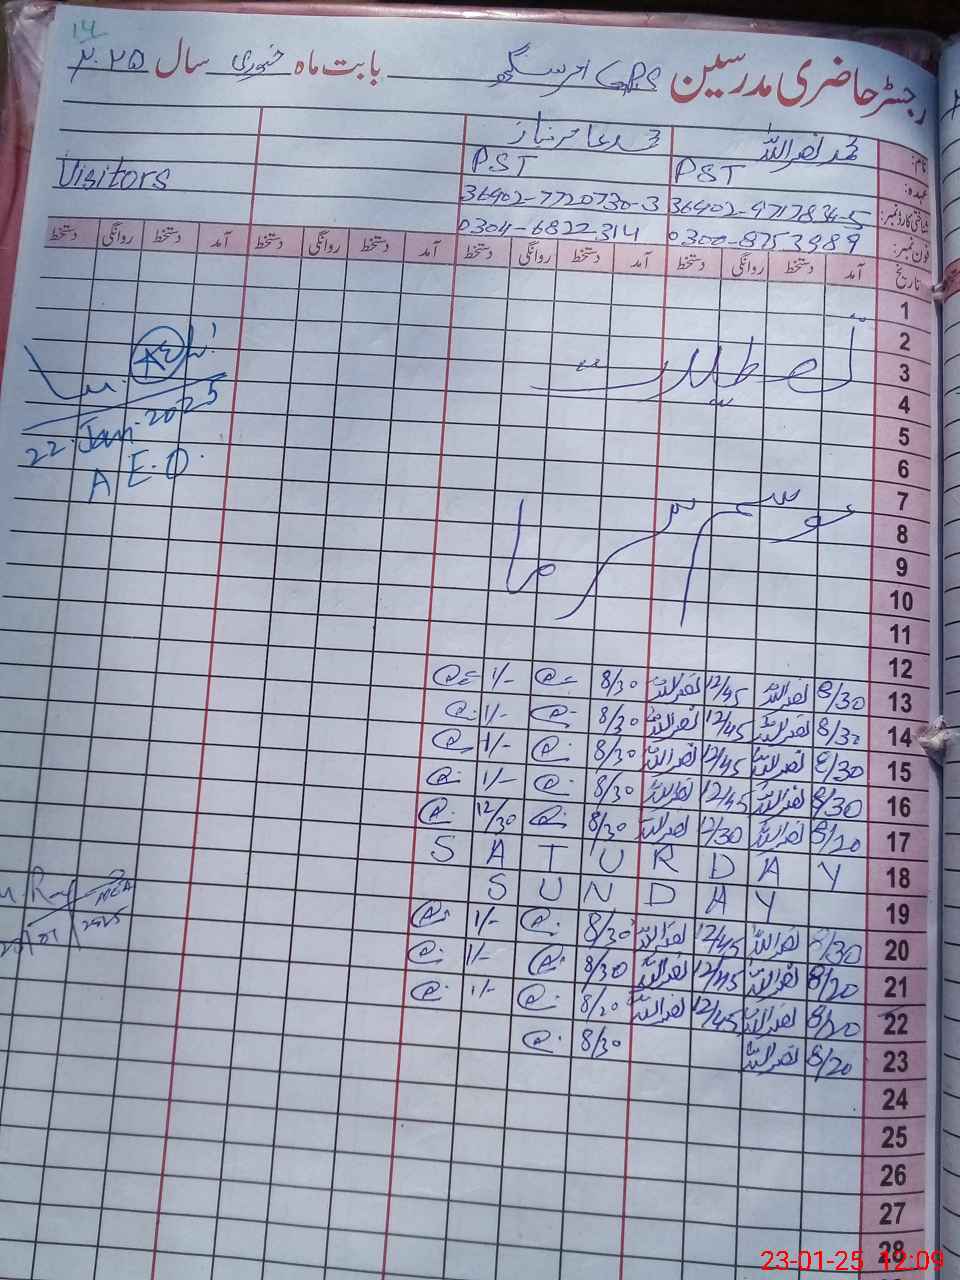 14
رجسٹر حاضری مدرسین GPS امر سنگھ بابت ماہ جنوری سال ۲۰۲۵
نام: محمد نصراللہ محمد عامر نیاز
عہدہ: PST PST Visitors
شناختی کارڈ نمبر: 36402-9717834-5 36402-7720730-3
فون نمبر: 0300-8753989 0304-6822314
تاریخ آمد دستخط روانگی دستخط آمد دستخط روانگی دستخط آمد دستخط روانگی دستخط آمد دستخط روانگی دستخط
1
2
3
تعطیلات
4
5
6
7
8
موسم سرما
9
10
11
12
13 8/30 نصراللہ 12/45 نصراللہ 8/30 1/-
14 8/30 نصراللہ 12/45 نصراللہ 8/30 1/-
15 8/30 نصراللہ 12/45 نصراللہ 8/30 1/-
16 8/30 نصراللہ 12/45 نصراللہ 8/30 1/-
17 8/20 نصراللہ 12/30 نصراللہ 8/30 12/30
18 SATURDAY
19 SUNDAY
20 8/30 نصراللہ 12/45 نصراللہ 8/30 1/-
21 8/20 نصراللہ 12/45 نصراللہ 8/30 1/-
22 8/20 نصراللہ 12/45 نصراللہ 8/20 1/-
23 8/20 نصراللہ 8/30
24
25
26
27
28
22-Jan-2025
A.E.O.
MEA
23-01-25 12:09